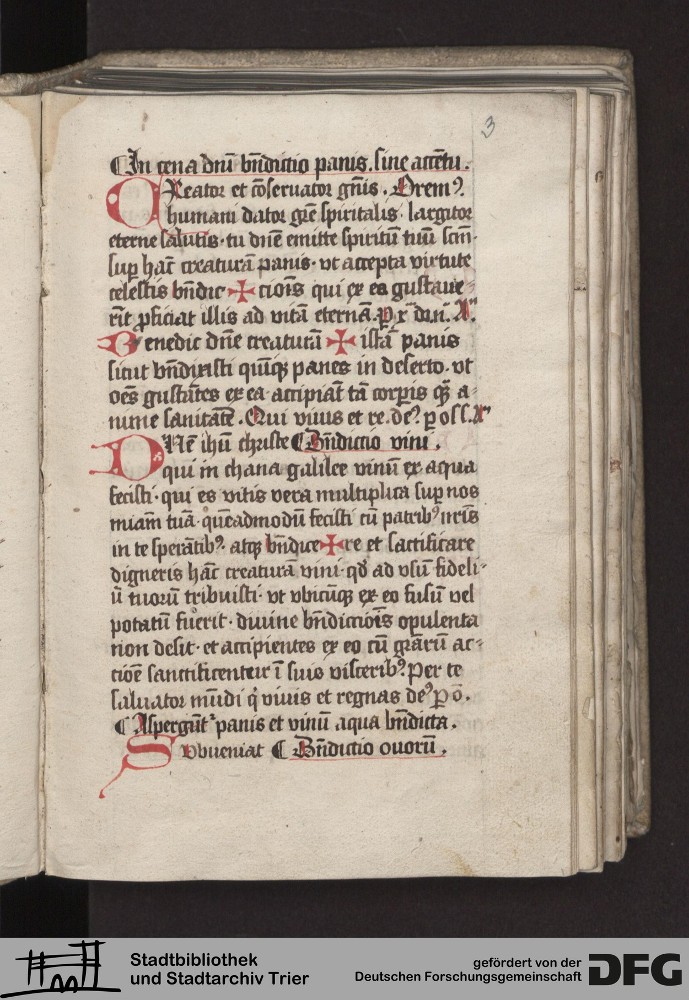 3
In cena dnī bn̄dictio panis. sine accētu.
CReator et cōseruator gn̄is. Oremꝰ.
humani dator grē spiritalis. largitor
eterne salutis. tu dnē emitte spiritū tuū scm̄.
sup hāc creaturā panis. vt accepta virtute
celestis bn̄dic ✠ cioīs qui ex ea gustaue-
rīt ꝓficiat illis ad vitā eternā. P xͫ dn̄. A
Benedic dnē creaturā ✠ istā panis
sicut bn̄dixisti quīqꝫ panes in deserto. vt
oēs gustātes ex ea. accipiāt tā corpis qꝫ a-
nime sanitatē. Qui viuis et re. deꝰ. p os s. A
DNē ihū christe Bn̄dictio vini.
qui in chana galilee vinū ex aqua
fecisti. qui es vitis vera multiplica sup nos
miam̄ tuā. quēadmodū fecisti cū patribꝰ nr̄is
in te sperātibꝰ. atqꝫ bn̄dice ✠ re et sāctificare
digneris hāc creaturā vini. qd̄ ad vsū fideli-
ū tuorū tribuisti. vt vbicūqꝫ ex eo fusū vel
potatū fuerit. diuine bn̄dictiois opulenta
tion desit. et accipientes ex eo cū grārū ac-
tiōe sanctificentur ī suis visceribꝰ. Per te
saluator mūdi q̇ viuis et regnas deꝰ P ō.
Aspergūt panis et vinū aqua bn̄dicta.
Svbueniat Bn̄dictio ouorū.
Stadtbibliothek
und Stadtarchiv Trier
gefördert von der
Deutschen Forschungsgemeinschaft
DFG